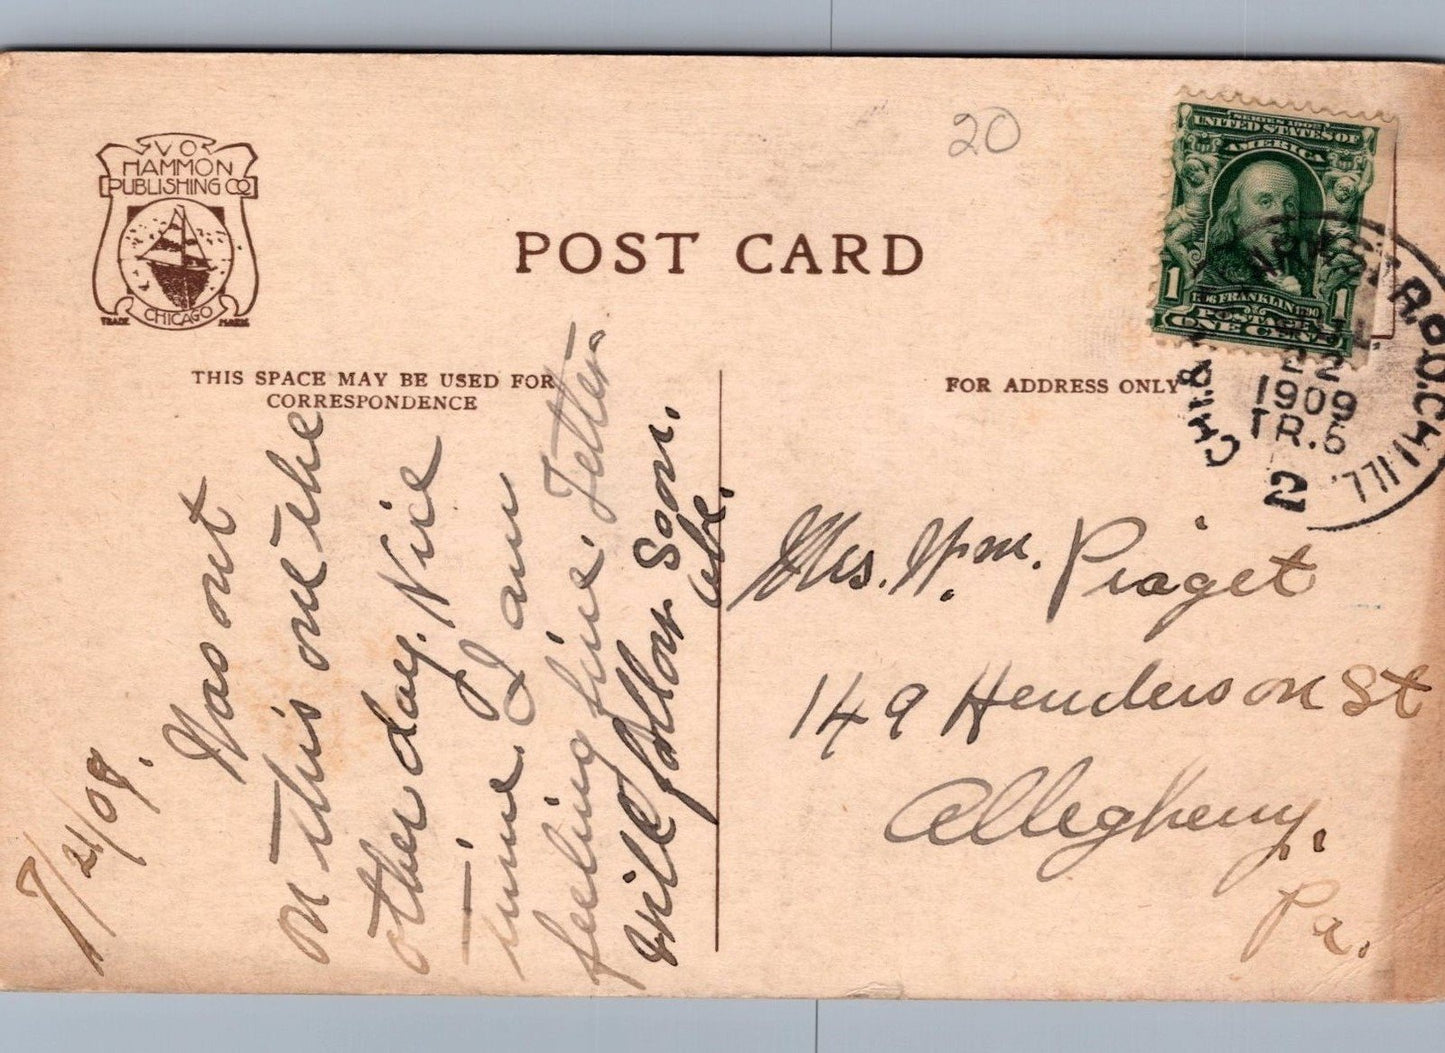 V O
HAMMON
PUBLISHING CO
CHICAGO
TRADE MARK
POST CARD
20
SERIES 1902
UNITED STATES OF
AMERICA
1 1706 FRANKLIN 1790 1
POSTAGE
ONE CENT
THIS SPACE MAY BE USED FOR
CORRESPONDENCE
FOR ADDRESS ONLY
R.P.O. CHI. ILL.
CHI. &
22
1909
TR. 5
2
7/21/09.
Was out
on this one the
other day. Nice
time. I am
feeling fine. Letter
will follow soon.
Abe.
Mrs. Wm. Piaget
149 Henderson St
Allegheny.
Pa.